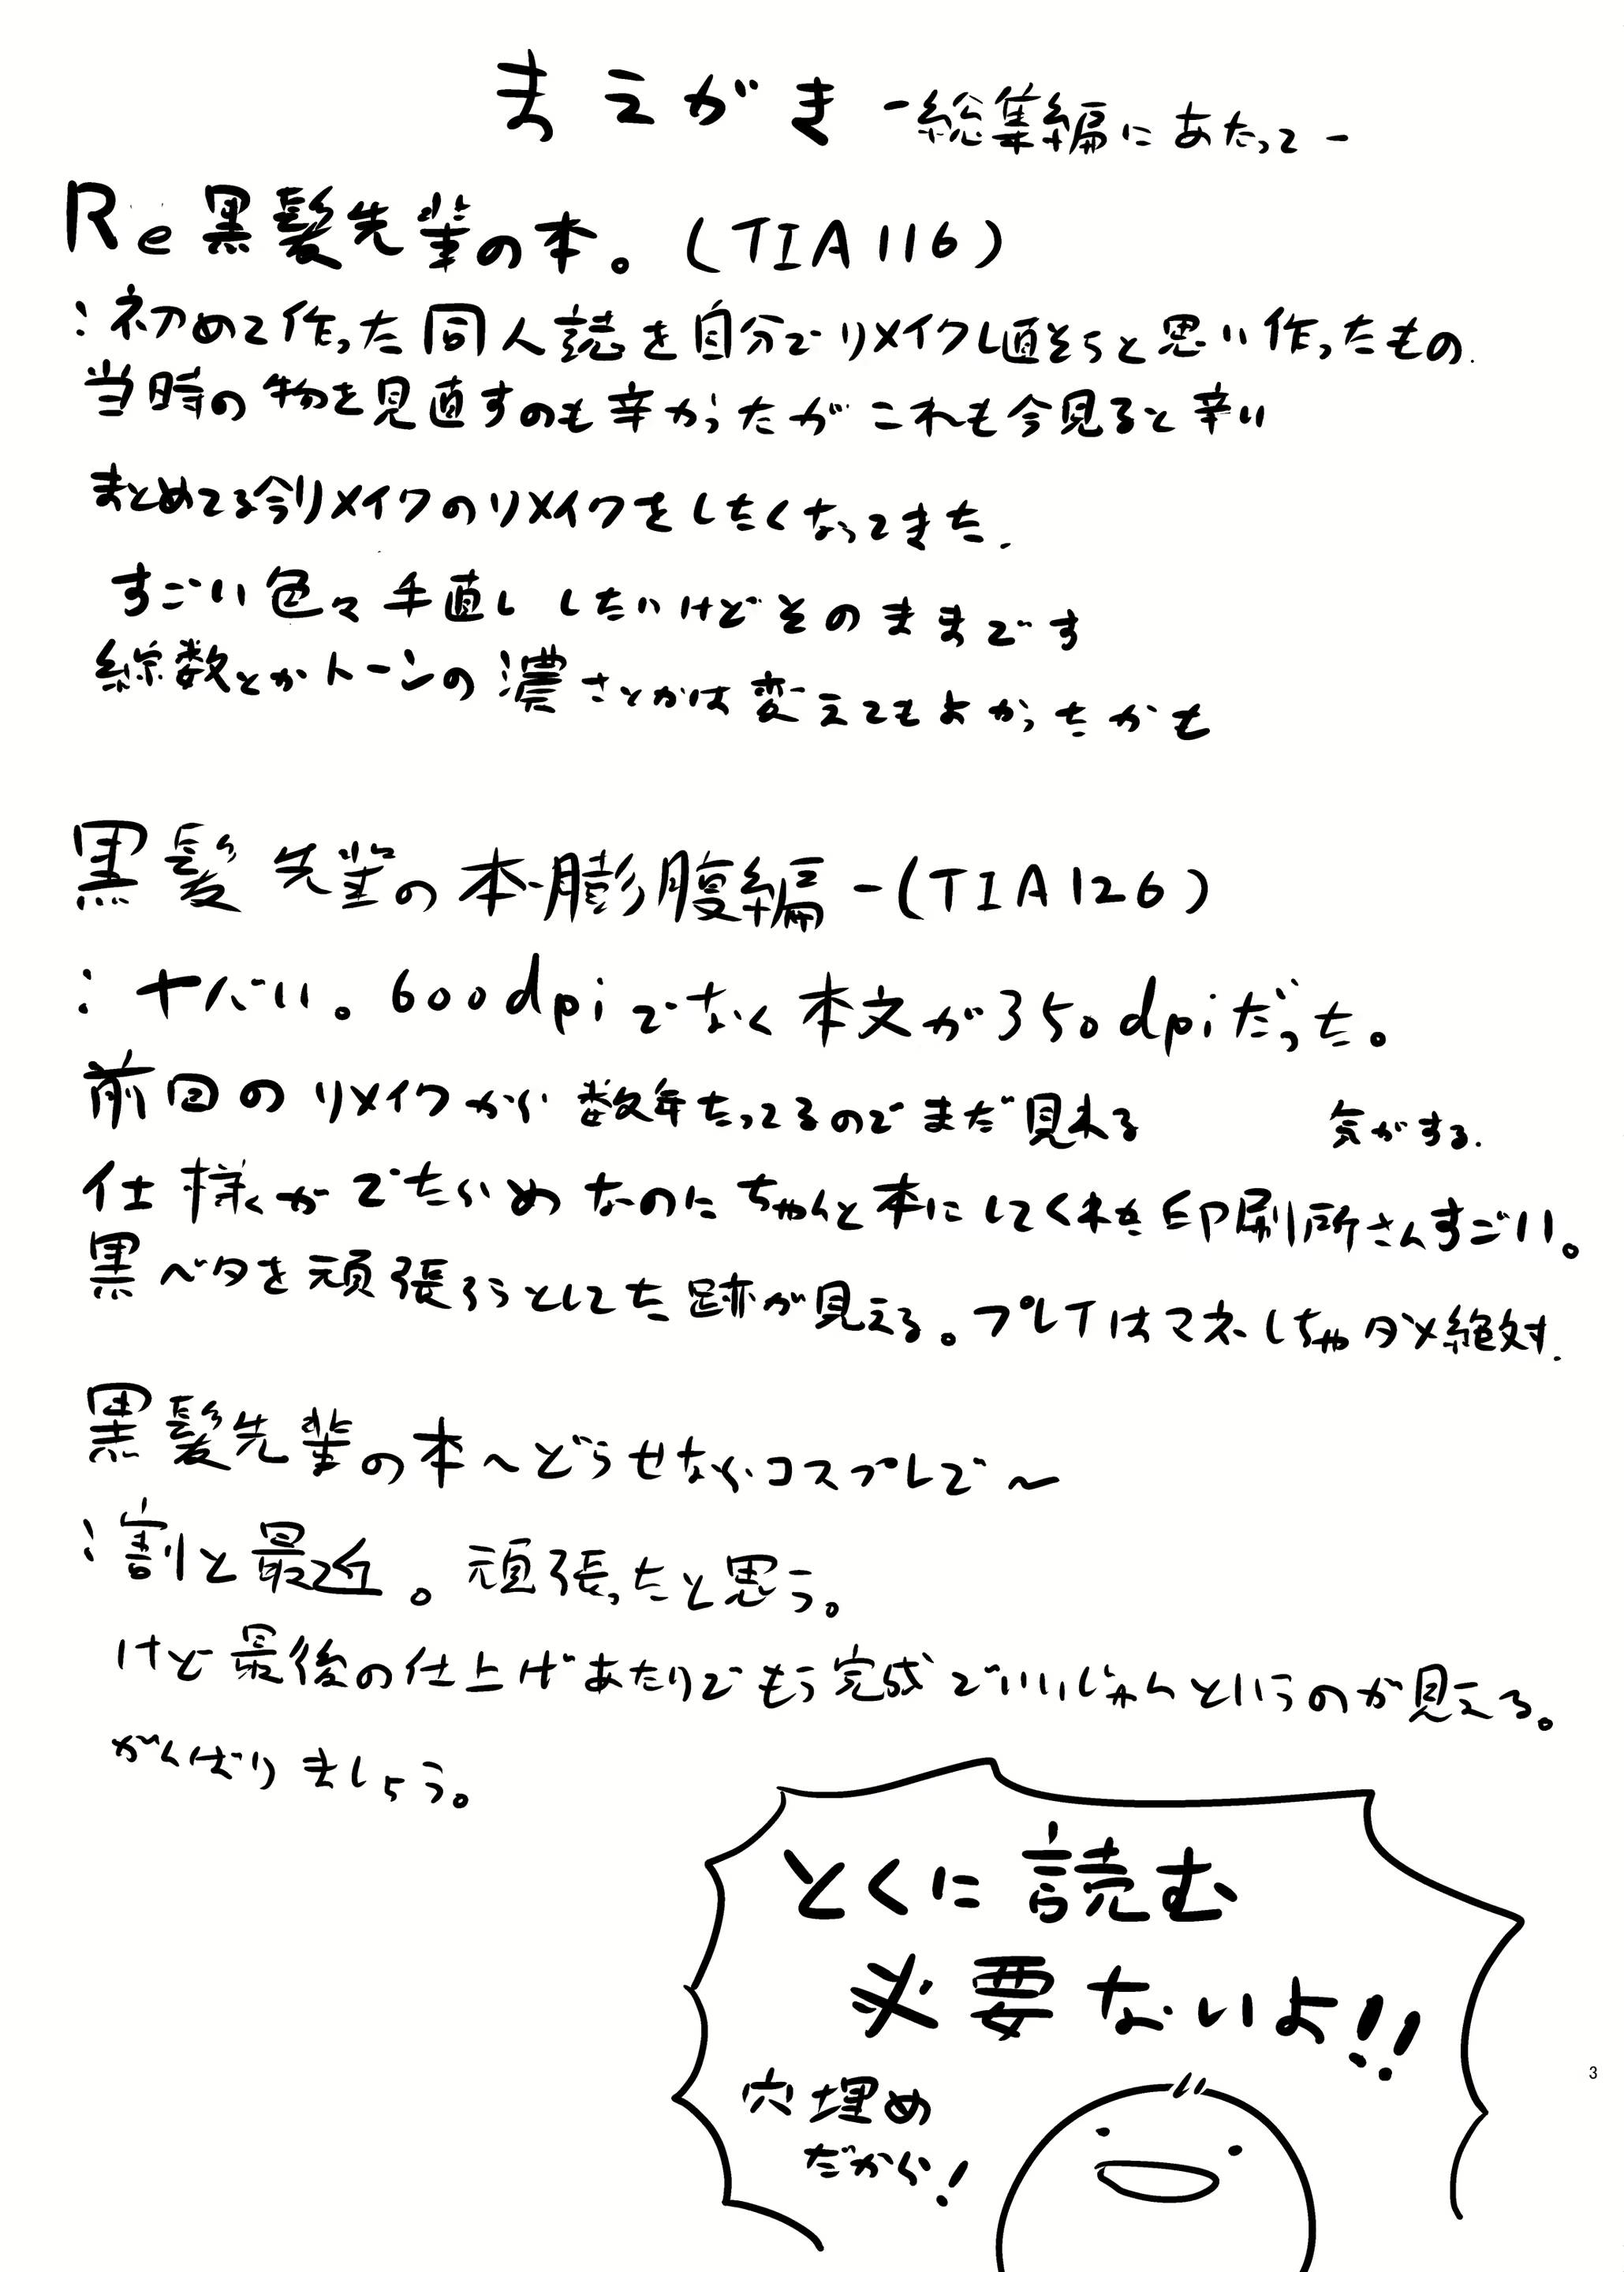 まえがき -総集編にあたって-
Re黒髪先輩の本。(TIA116)
:初めて作った同人誌を自分でリメイクし直そうと思い作ったもの.
当時の物を見直すのも辛かったがこれも今見ると辛い
まとめてる今リメイクのリメイクをしたくなってきた.
すごい色々手直ししたいけどそのままです
線数とかトーンの濃さとかは変えてもよかったかも
黒髪先輩の本-膨腹編-(TIA126)
:ヤバい。600dpiでなく本文が350dpiだった。
前回のリメイクから数年たってるのでまだ見れる 気がする.
仕様がでたらめなのにちゃんと本にしてくれた印刷所さんすごい。
黒ベタを頑張ろうとしてた跡が見える。プレイはマネしちゃダメ絶対.
黒髪先輩の本～どうせならコスプレで～
:割と最近。頑張ったと思う。
けど最後の仕上げあたりでもう完成でいいじゃんというのが見える。
がんばりましょう。
とくに読む
必要ないよ!!
穴埋め
だから!
3